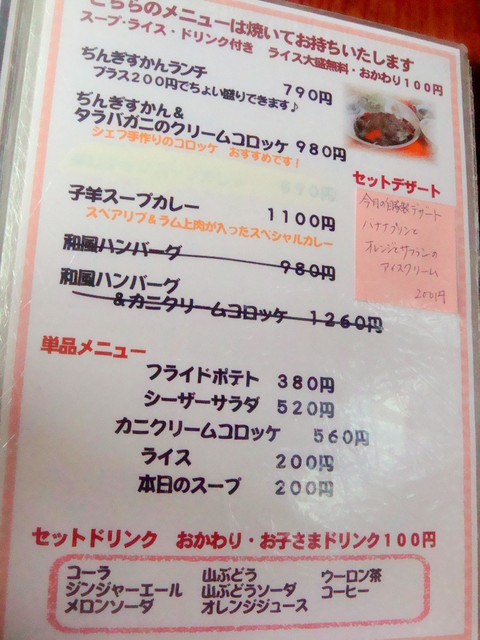 こちらのメニューは焼いてお持ちいたします
スープ・ライス・ドリンク付き ライス大盛無料・おかわり100円
ぢんぎすかんランチ 790円
プラス200円でちょい盛りできます♪
ぢんぎすかん&
タラバガニのクリームコロッケ 980円
シェフ手作りのコロッケ おすすめです!
セットデザート
今月の自家製デザート
バナナプリンと
オレンジとサフランの
アイスクリーム
200円
子羊スープカレー 1100円
スペアリブ&ラム上肉が入ったスペシャルカレー
和風ハンバーグ 980円
和風ハンバーグ
&カニクリームコロッケ 1260円
単品メニュー
フライドポテト 380円
シーザーサラダ 520円
カニクリームコロッケ 560円
ライス 200円
本日のスープ 200円
セットドリンク おかわり・お子さまドリンク100円
コーラ 山ぶどう ウーロン茶
ジンジャーエール 山ぶどうソーダ コーヒー
メロンソーダ オレンジジュース